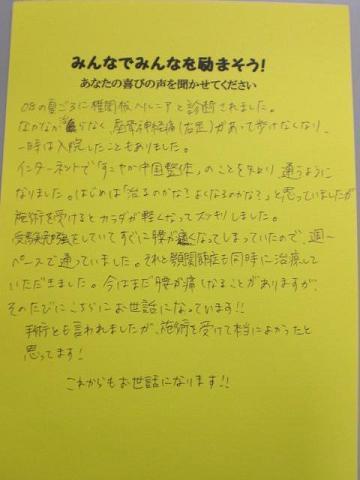 みんなでみんなを励まそう!
あなたの喜びの声を聞かせてください
08の夏ごろに椎間板ヘルニアと診断されました。
なかなか治らなく、座骨神経痛(右足)があって歩けなくなり、
一時は入院したこともありました。
インターネットで「すこやか中国整体」のことを知り、通うように
なりました。はじめは「治るのかな?よくなるのかな?」と思っていましたが
施術を受けるとカラダが軽くなってスッキリしました。
受験勉強をしていてすぐに腰が痛くなってしまっていたので、週一
ペースで通っていました。それと顎関節症も同時に治療して
いただきました。今はまだ腰が痛くなることがありますが、
そのたびにこちらにお世話になっています!!
手術とも言われましたが、施術を受けて本当によかったと
思ってます!
これからもお世話になります!!